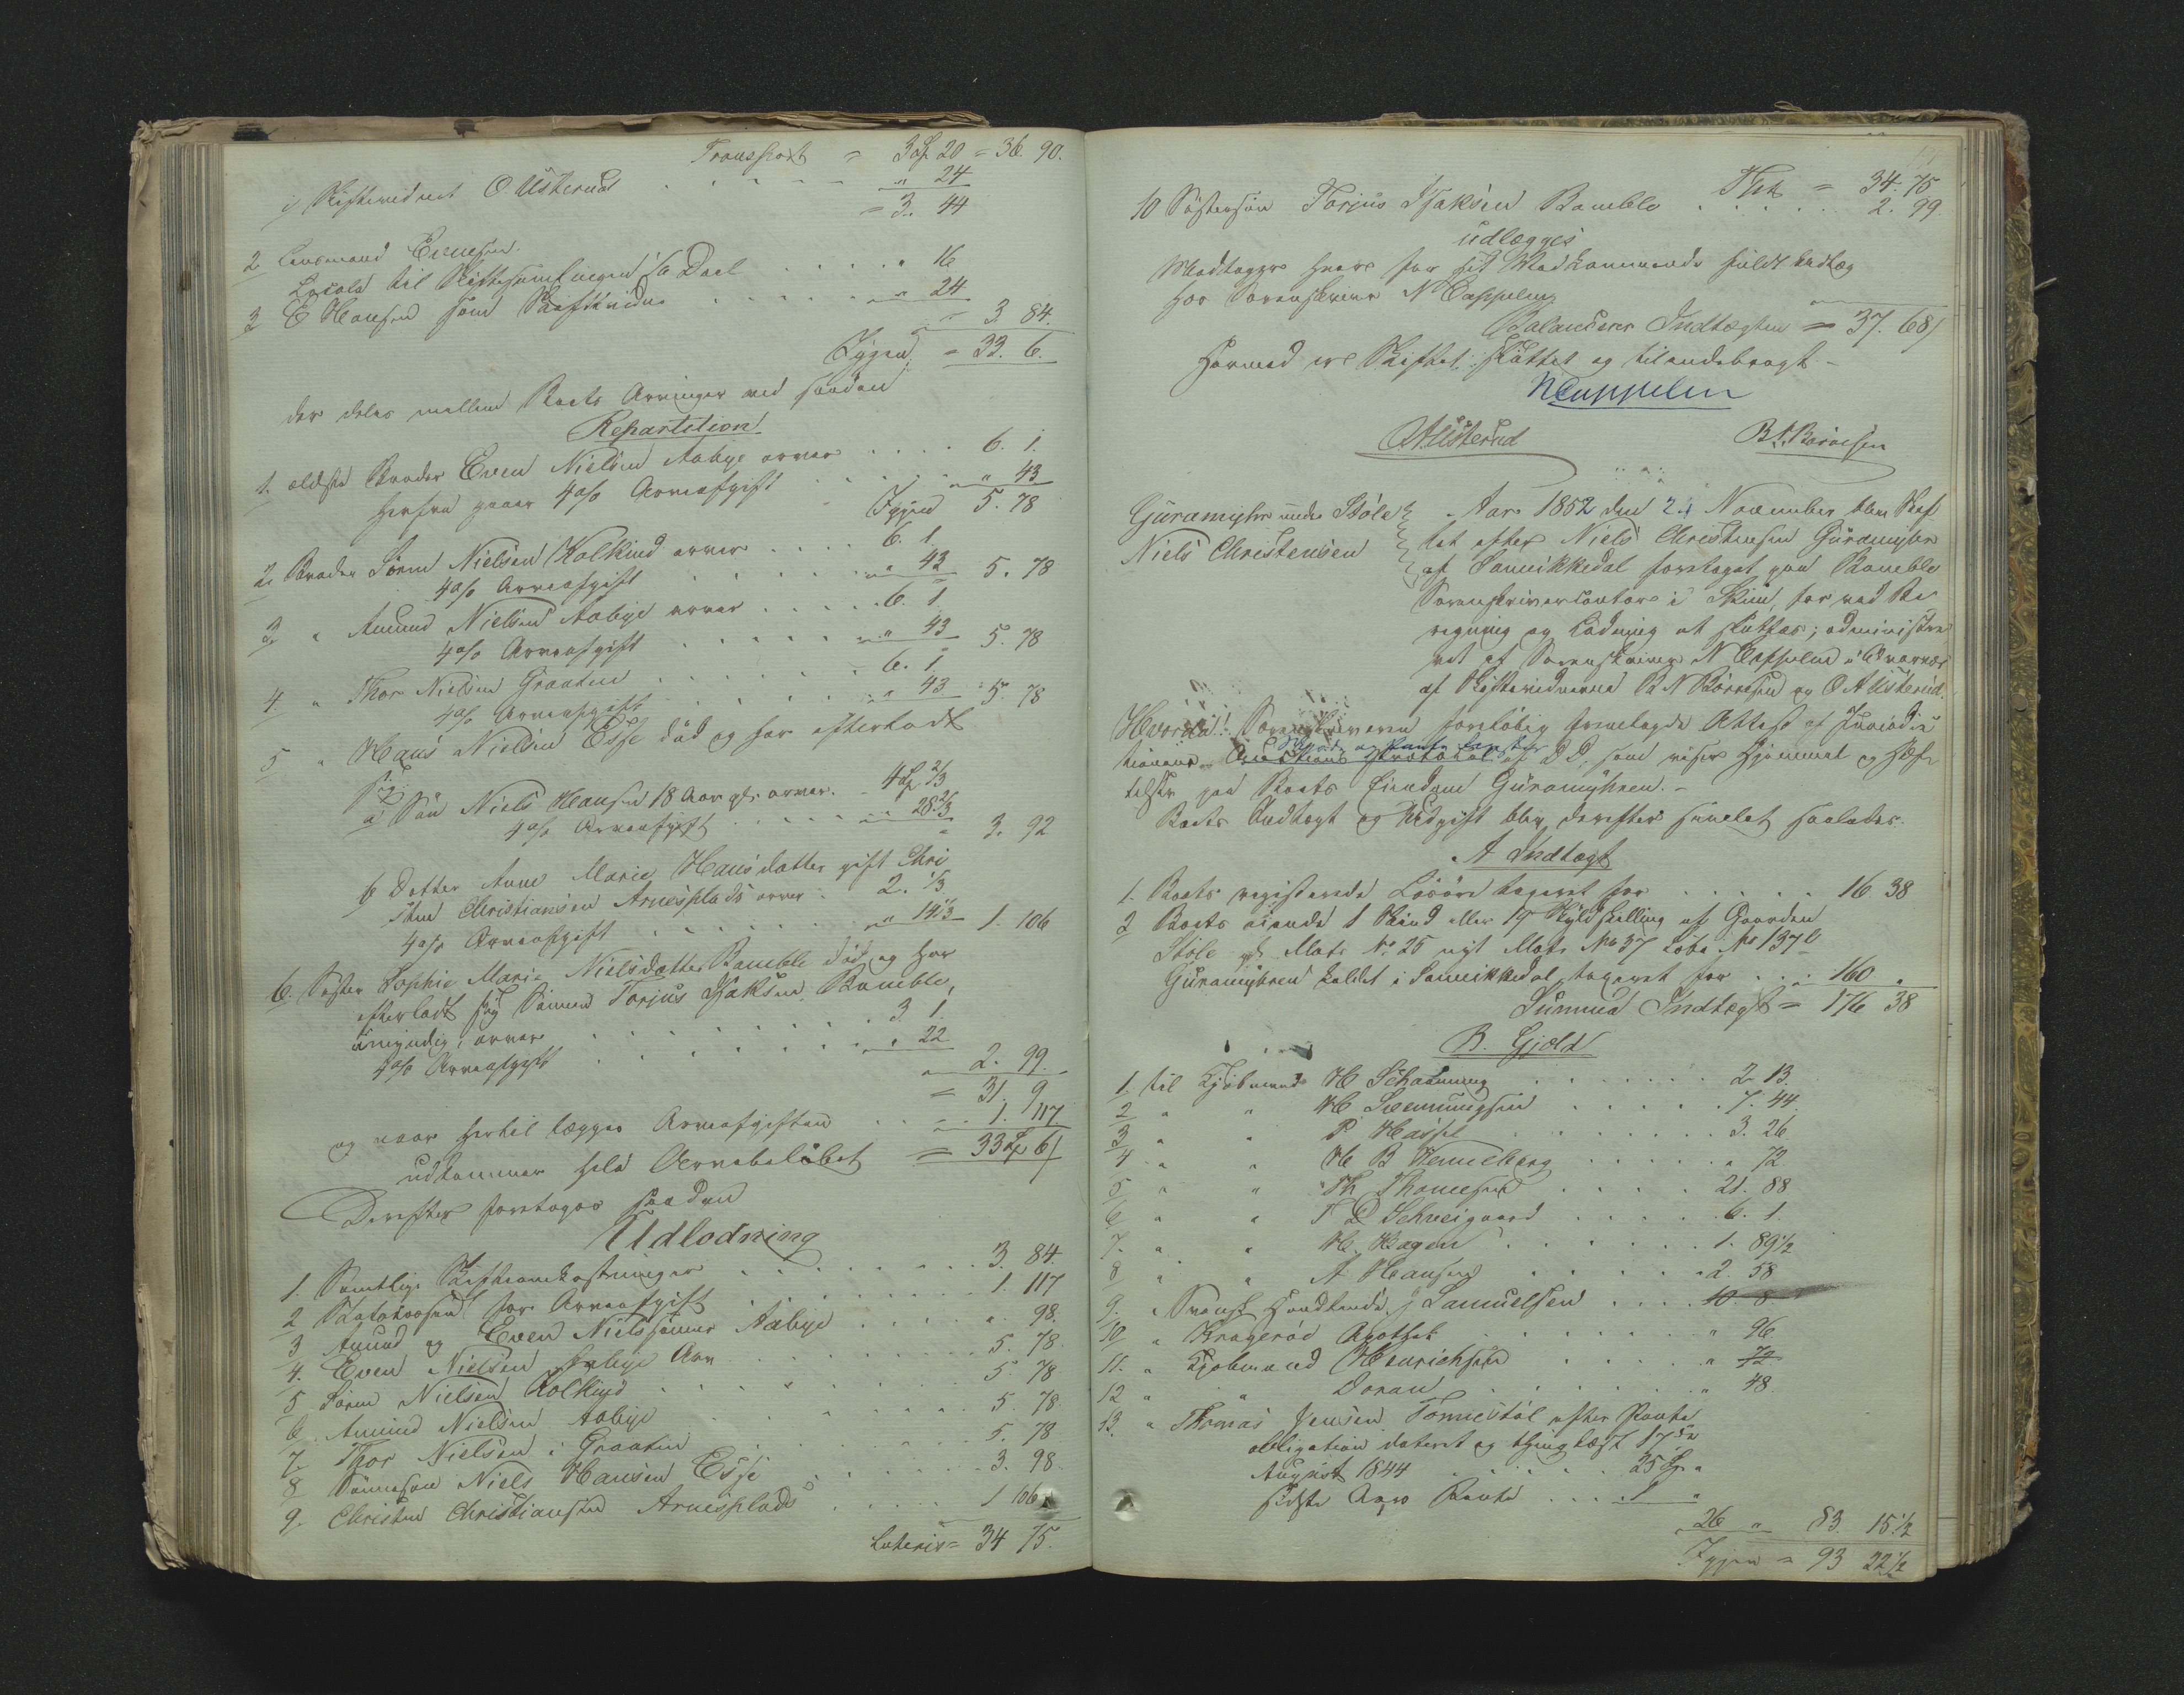 Transport = 3 Sp 20 = 36. 90.
Skiftevidnet O Usterud . . . . . " 24
= 3. 44
2 Lensmand Evensen
Locale til Skiftesamlingen paa Dael . . . . . " 16
3 E Hansen som Skiftevidne . . . . . " 24
" 3. 84.
Igjen = 33. 6.
der deles mellem Boets Arvinger ved saadan
Repartition
1. ældste Broder Even Nielsen Aabye arver . . . . 6. 1.
herfra gaaer 4 % Arveafgift . . . . . " 43
Igjen 5. 78
2. Broder Søren Nielsen Kolkind arver . . . . 6. 1.
4 % Arveafgift . . . . . " 43 5. 78
3 " Amund Nielsen Aabye arver . . . . . 6. 1
4 % Arveafgift . . . . . " 43 5. 78
4 " Thor Nielsen Graaten . . . . . 6. 1.
4 % Arveafgift . . . . . " 43 5. 78
5 " Hans Nielsen Esse død og har efterladt
sig:
a Søn Niels Hansen 18 Aar gl. arver. 4 Sp 2/3
4 % Arveafgift . . . . . " 28 2/3
" 3. 92
b Datter Anne Marie Hansdatter gift Chri
sten Christiansen Arnesplads arver: 2. 1/3
4 % Arveafgift . . . . . " 14 1/3 1. 106
6. Søster Sophie Marie Nielsdatter Bamble død og har
efterladt sig Sønnen Torjus Isaksen Bamble,
umyndig, arver . . . . . 3. 1.
4 % Arveafgift . . . . . " 22
2. 99.
= 31. 9
og naar hertil lægges Arveafgiften . . . 1. 117
udkommer hele Arvebeløbet = 33 Sp 6/
Derefter foretages saadan
Udlodning
1. Samtlige Skifteomkostninger . . . . . 3. 84.
2 Statskassen for Arveafgift . . . . . 1. 117
3 Amund og Even Nielssønner Aabye . . . . . " 98.
4. Even Nielsen Aabye Arv . . . . . 5. 78.
5 Søren Nielsen Kolkind . . . . . 5. 78
6 Amund Nielsen Aabye . . . . . 5. 78.
7 Thor Nielsen i Graaten . . . . . 5. 78
8 Sønnesøn Niels Hansen Esse . . . . . 3. 98
9. Christen Christiansen Arnesplads . . . . . 1 106
Lateris = 34 75.
Tprt = 34. 75
10 Søstersøn Torjus Isaksen Bamble . . . . . 2. 99
udlægges
Modtager hver for sit Vedkommende fuldt Udlæg
hos Sorenskriver N Cappelen
Balancerer Indtægten = 37. 68/
Hermed er Skiftet sluttet og tilendebragt.
NCappelen
OAUsterud B.N.Børresen
Guramyhr under Støle
Niels Christensen
Aar 1852 den 24 November blev Skif
tet efter Niels Christensen Guramyhr
af Sannikkedal foretaget paa Bamble
Sorenskrivercontor i Skien, for ved Be
regning og Lodning at sluttes; administre
ret af Sorenskriver N Cappelen i Overvær
af Skiftevidnerne B N Børresen og O A Usterud.
Hvorda! Sorenskriveren foreløbig fremlagde Attest af Jurisdic
tionens Skjøde og Pante Register Auctions Protokol af DD, som viser Hjemmel og Hef
telser paa Boets Eiendom Guramyhren. -
Boets Indtægt og Udgift blev derefter samlet saaledes.
A Indtægt
1. Boets registrerede Løsøre taxeret for . . . . . 16 38
2 Boets eiende 1 Skind eller 19 Skyldskilling af Gaarden
Støle gl. Matr No 25 nyt Matr No 37 Løbe No 137 b
Guramyhren kaldet i Sannikkedal taxeret for . . . 160 "
Summa Indtægt = 176 38
B. Gjæld
1. til Kjøbmand H Schanning . . . . . 2 13.
2 " " H Sæmmungsen . . . . . 7. 44.
3 " " P. Hassel . . . . . 3. 26
4 " " H B Hennelberg . . . . . " 72
5 " " Th Thomesen . . . . . 21. 88
6 " " T D Schweigaard . . . . . 6. 1.
7. " " H. Bagen . . . . . 1. 89 1/2
8 " " A Hansen . . . . . 2. 58
9. " Svensk Handlende J Samuelsen . . . . 10 8
10 " Kragerøe Apothek . . . . . " 96
11. " Kjøbmand Henrichsen . . . . . " 72
12 " " Doran . . . . . " 48
13. " Thomas Jensen Tonnestøl efter Pante
obligation dateret og thinglæst 17de
August 1844 . . . . . 25 Sp "
sidste Aars Rente . . . . 1 "
26 " 83. 15 1/2
Igjen = 93 22 1/2